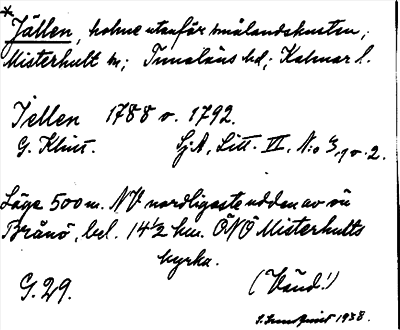 * Jällen, holme utanför smålandskusten;
Misterhult sn; Tunaläns hd; Kalmar l.
Jellen 1788 o. 1792.
G. Klint. Sj.A, Litt. VI, N:o 6, 1 o. 2.
Läge 500 m. NV nordligaste udden av ön
Brånö, bel. 14 1/2 km. ÖNÖ Misterhults
kyrka.
G. 29. (Vänd!)
1938.